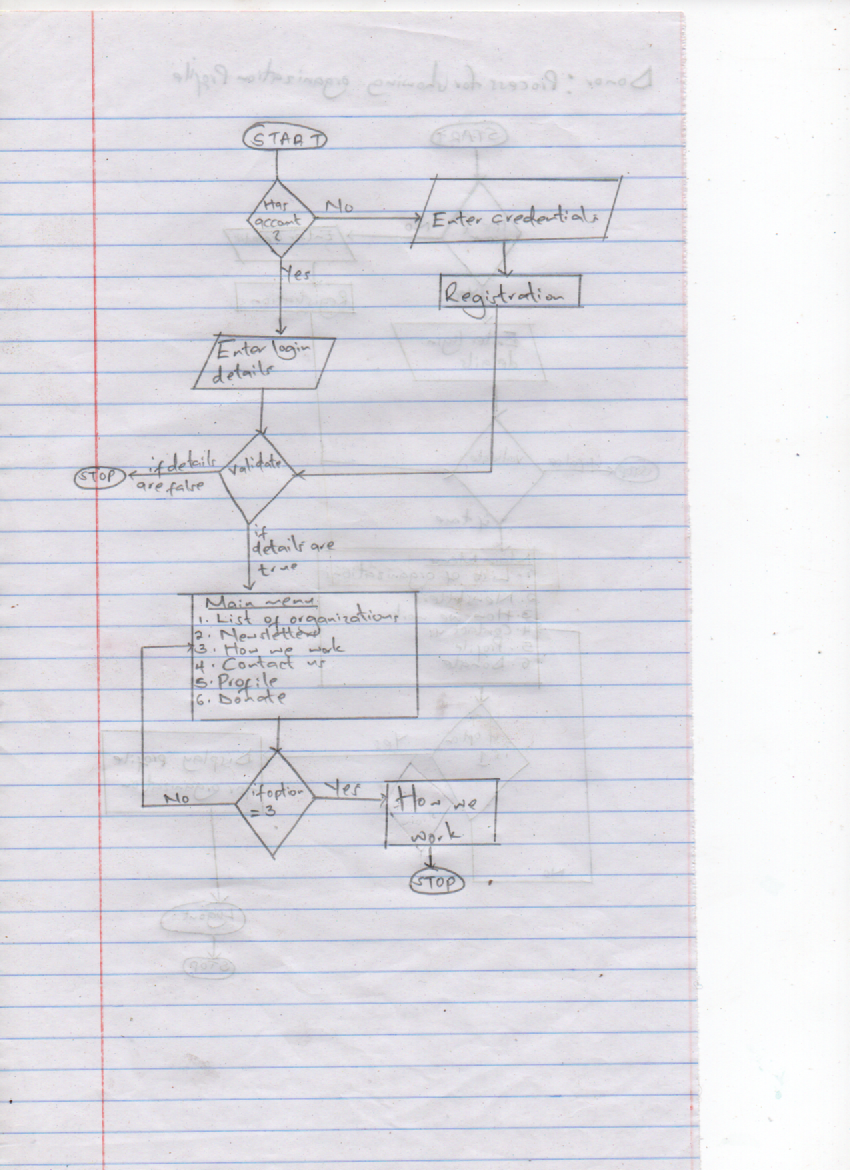 START
Has
account
?
No
Enter credentials
Yes
Registration
Enter login
details
validate
if details
are false
STOP
if
details are
true
Main menu
1. List of organizations
2. Newsletters
3. How we work
4. Contact us
5. Profile
6. Donate
if option
= 3
No
Yes
How we
work
STOP